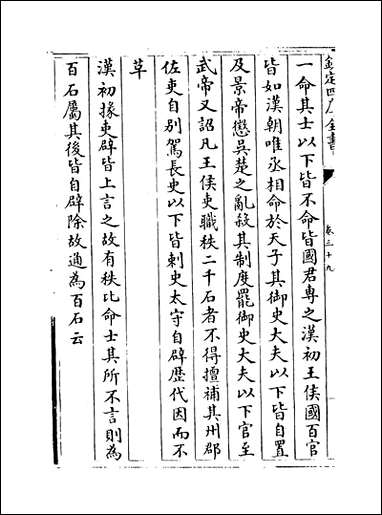 欽定四庫全書
卷三十九
一命其士以下皆不命皆國君專之漢初王侯國百官
皆如漢朝唯丞相命於天子其御史大夫以下皆自置
及景帝懲吳楚之亂殺其制度罷御史大夫以下官至
武帝又詔凡王侯吏職秩二千石者不得擅補其州郡
佐吏自别駕長史以下皆刺史太守自辟歴代因而不
革
漢初掾吏辟皆上言之故有秩比命士其所不言則為
百石屬其後皆自辟除故通為百石云